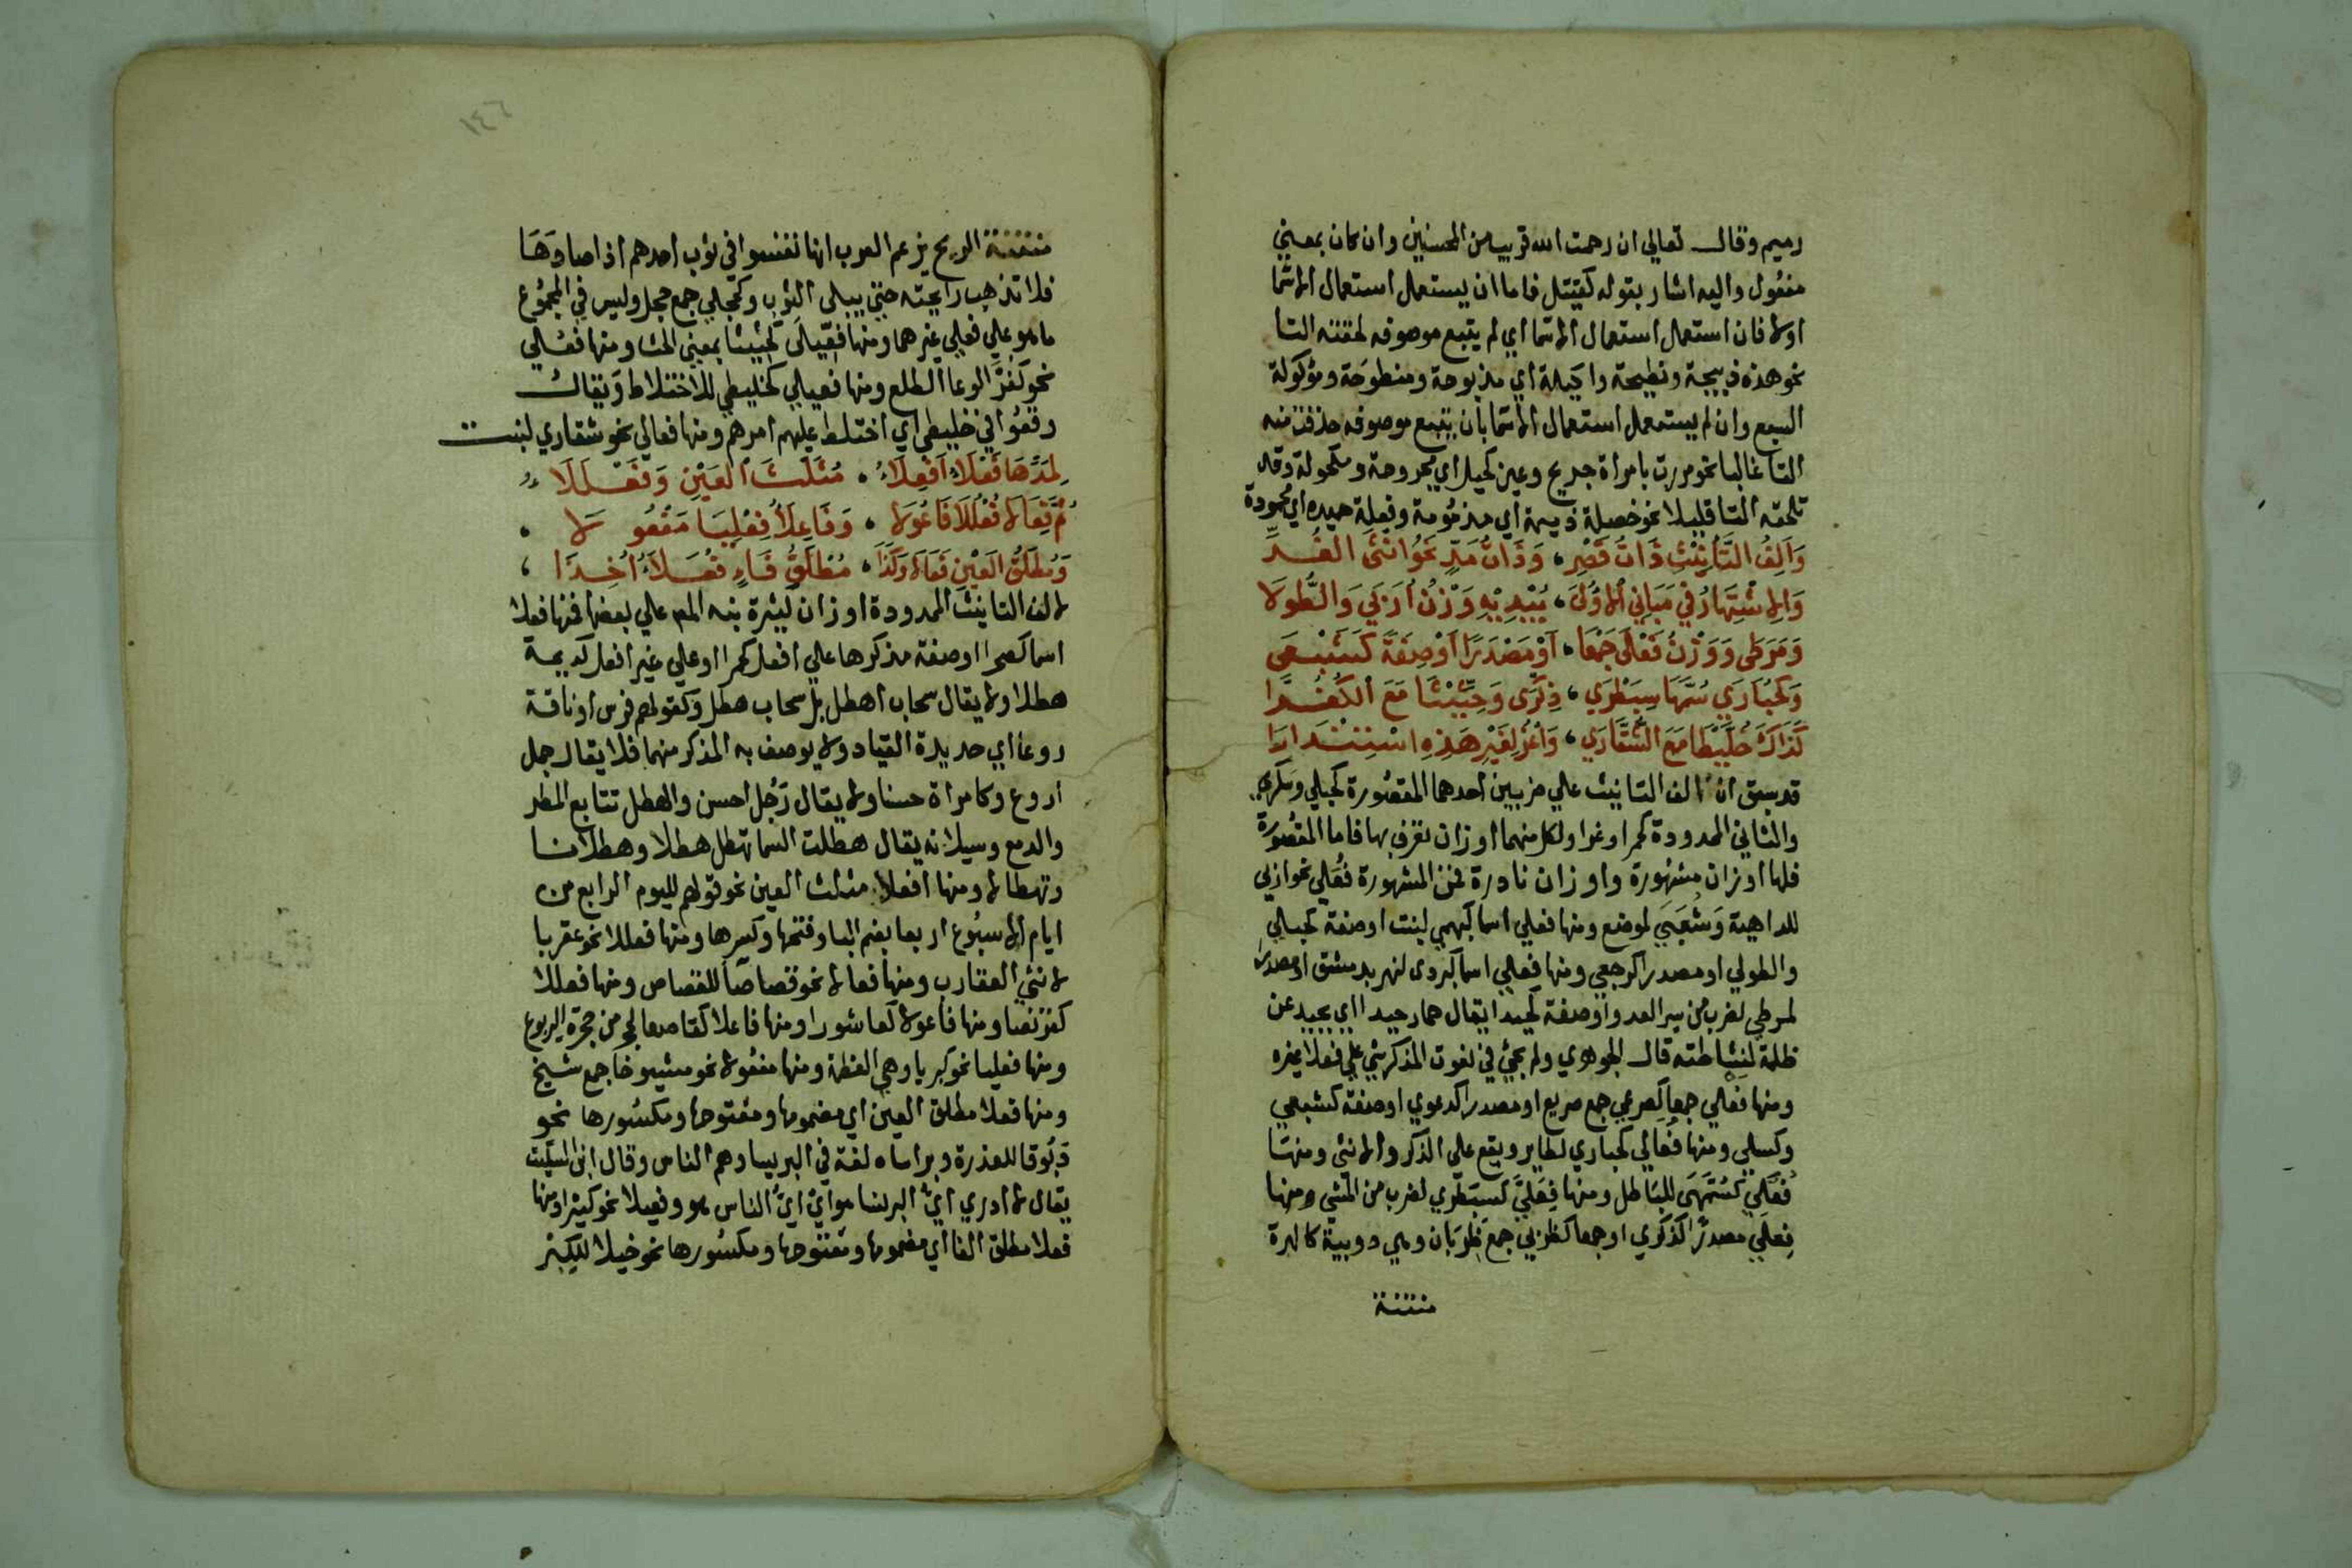 رميم وقال تعالي ان رحمت الله قريب من المحسنين وان كان بمعني
مفعول واليه اشار بقوله كقتيل فاما ان يستعمل استعمال الاسما
اولا فان استعمل استعمال الاسما اي لم يتبع موصوفه لحقته التا
نحو هذه ذبيحة ونطيحة واكيلة اي مذبوحة ومنطوحة ومؤكولة
السبع وان لم يستعمل استعمال الاسما بان يتبع موصوفه حذفت منه
التا غالبا نحو مررت بامراة جريح وعين كحيل اي مجروحة ومكحولة وقد
تلحقه التا قليلا نحو خصلة ذميمة اي مذمومة وفعلة حميده اي محمودة
وَاَلِفُ التَّأْنِيْثِ ذَاتُ قَصْرِ، وَذَاتُ مَدٍّ نَحْوُ انْثَى الغُرِّ
وَالاشْتِهَارُ في مَبَانِي الاوُلىَ، يُبْدِيْهِ وَزْنُ اُرَبَي وَالطُّولَا
وَمَرَطَى وَوَزْنُ فَعْلَى جَمْعَا، اَوْ مَصْدَرًا اَوْ صِفَةً كَشَبْعَى
وَكَحُبَارَي سُمَّهَا سِبَطْرَي، ذِكْرَى وَحِثِّيْثَا مَعَ الكُفُرَّا
كَذَاكَ خُلَّيْطَا مَعَ الشُّقَّارَي، وَاعْزُ لِغَيْرِ هَذِهِ اسْتِنْدَارَا
قد سبق ان الف التانيث علي ضربين احدهما المقصورة كحبلي وسكري
والثاني الممدودة كحمرا وغرا ولكل منهما اوزان تعرف بها فاما المقصورة
فلها اوزان مشهورة واوزان نادرة فمن المشهورة فُعَلي نحو اربي
للداهية وشُعَبَي لموضع ومنها فعلي اسما كبهمي لنبت او صفة كحبلي
والطولي او مصدرا كرجعي ومنها فعلي اسما كبردى لنهر بدمشق او مصدرا
لمرطي لضرب من سير العدو او صفة كحيدا يقال حمار حيدا اي يحيد عن
ظله لنشاطه قال الجوهري ولم يجئ في نعوت المذكر شي علي فعلا غيره
ومنها فعلي جمعا كصرعي جمع صريع او مصدرا كدعوي او صفة كشبعي
وكسلي ومنها فُعالي كحباري لطاير ويقع على الذكر والانثى ومنها
فُعَّلَي كسُمَّهَى للباطل ومنها فِعَلَّي كسبطري لضرب من المشي ومنها
فِعلَي مصدرًا كذكري او جمعا كظربي جمع ظربان وهي دويبة كالهرة
منتنة
١٤٦
منتنة الريح يزعم العرب انها تفسوا في ثوب احدهم اذا صادَهَا
فلا تذهب رايحته حتي يبلى الثوب وكحجلي جمع حجل وليس في الجموع
ما هو علي فعلي غيرهما ومنها فِعّيلَى كحثيثا بمعني الحث ومنها فعُلي
نحو كفرّا لوعا الطلع ومنها فعيلي كخليطي للاختلاط ويقال
وقعُوا في خليطي اي اختلط عليهم امرهم ومنها فعالي نحو شقاري لنبت
لِمَدِّهَا فَعْلَاءُ اَفْعِلَاءُ، مُثَلَّثَ العَيْنِ وَفَعْلَلَاءُ
ثُمَّ فِعَالا فُعْلُلَا فَاعُولا، وَفَاعِلَاءُ فِعْلِيَا مَفْعُولَا
وَمُطلَقُ العَيْنِ فَعَالا وَكَذَا، مُطْلَقُ فَاءٍ فعَلَاءُ اُخِذَا،
لالف التانيث الممدودة اوزان كثيرة نبه المص علي بعضها فمنها فعلا
اسما كصحرا او صفة مذكرها علي افعل كحمرا او علي غير افعل كديمة
هطلا ولا يقال سحاب اهطل بل سحاب هطل وكقولهم فرس او ناقة
روعا اي حديدة القياد ولا يوصف به المذكر منهما فلا يقال جمل
اروع وكامراة حسنا ولا يقال رَجُل احسن والهطل تتابع المطر
والدمع وسيلانه يقال هطلت السما تهطل هطلا وهطلانا
وتهطالا ومنها افعلا مثلث العين نحو قولهم لليوم الرابع من
ايام الاسبُوع اربعا بضم البا وفتحها وكسرها ومنها فعللا نحو عقربا
لانثي العقارب ومنها فعالا نحو قصاصا للقصاص ومنها فعللا
كقرفصا ومنها فاعولا كعاشورا ومنها فاعلا كقاصعا لجحر من جحرة اليربوع
ومنها فعليا نحو كبريا وهي العظمة ومنها مفعولا نحو مشيوخا جمع شيخ
ومنها فعلا مطلق العين اي مضمومها ومفتوحها ومكسورها نحو
دَبُوقا للعذرة وبراساه لغة في البريسا وهم الناس وقال ابن السكيت
يقال لا ادري ايُّ البرنسا هو ايْ ايُّ الناس هو وفعيلا نحو كثيرا ومنها
فعلا مطلق الفا اي مضمومها ومفتوحها ومكسورها نحو خيلا للكبر